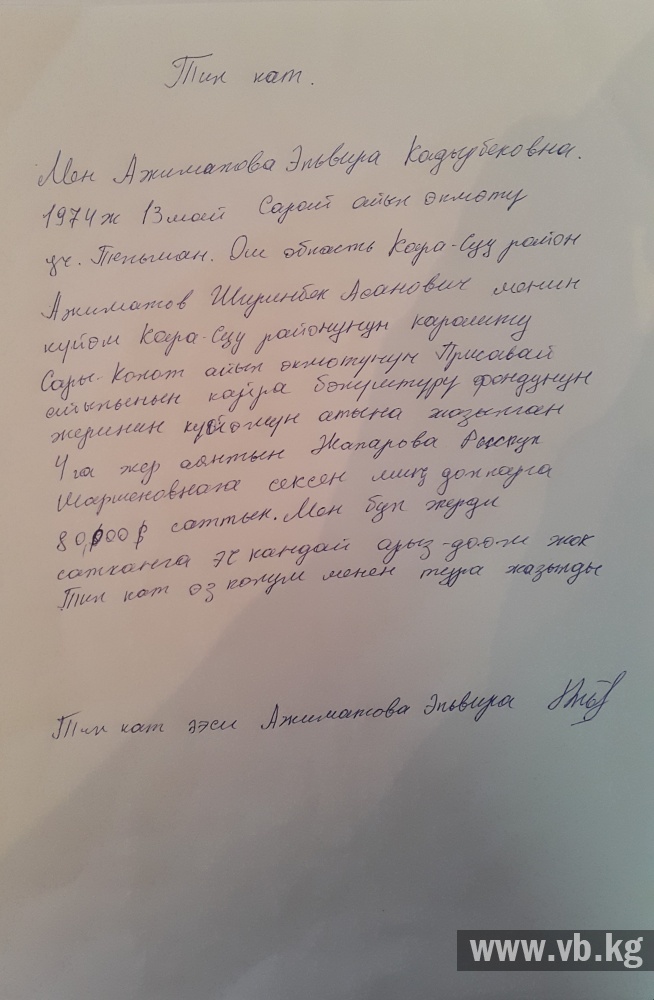 Тил кат.
Мен Ажиматова Эльвира Кадырбековна.
1974ж 13 май Сарай айыл окмоту
уч. Тельман. Ош область Кара-Суу район
Ажиматов Ширинбек Асанович менин
куйом Кара-Суу районунун караштуу
Сары-Колот айыл окмотунун Присавай
айылынын кайра болуштуруу фондунун
жеринин куйомун атына жазылган
4 га жер аянтын Жапарова
Шаршеновнага сексен миң долларга
80,000$ саттык. Мен бул жерди
сатканга эч кандай арыз-доом жок
Тил кат оз колум менен туура жазылды
Тил кат ээси Ажиматова Эльвира
www.vb.kg